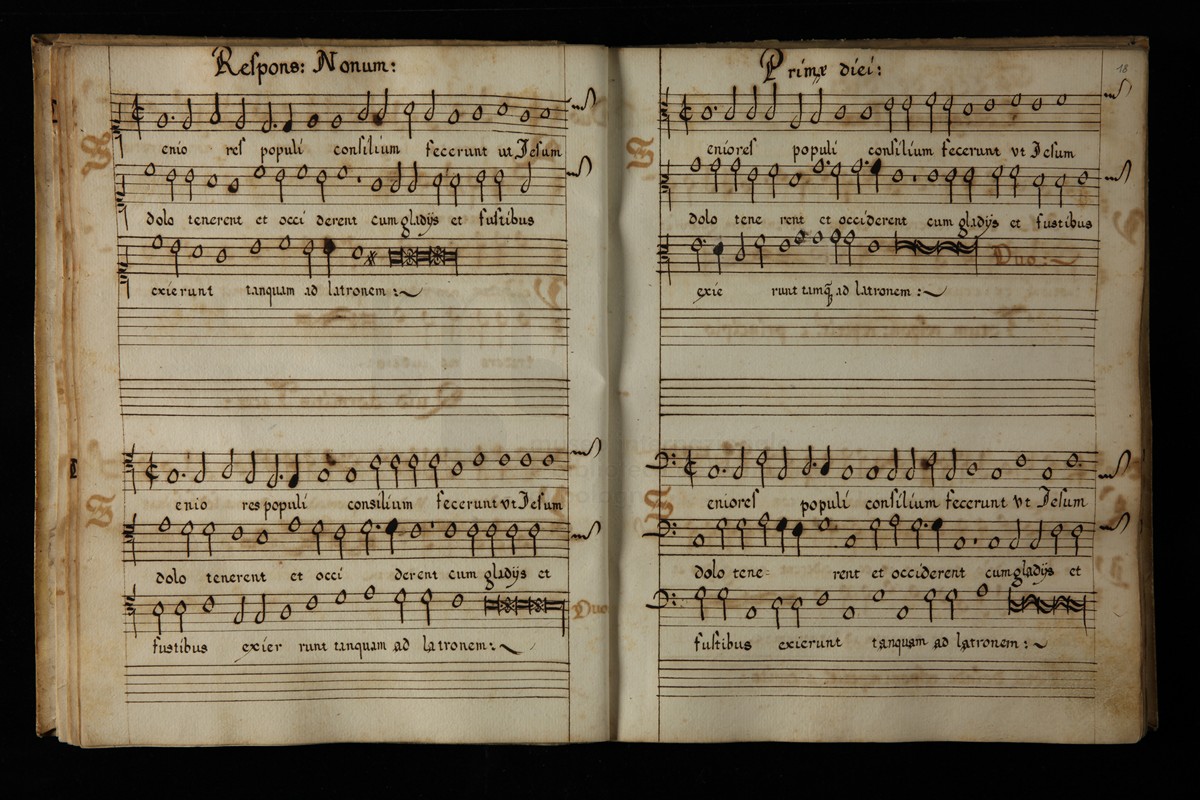 Respons: Nonum:
enio res populi consilium fecerunt ut Jesum
dolo tenerent et occi derent cum gladijs et fustibus
exierunt tanquam ad latronem:
enio res populi consilium fecerunt vt Jesum
dolo tenerent et occi derent cum gladijs et
fustibus exier runt tanquam ad latronem:
Duo
Primæ diei:
18
eniores populi consilium fecerunt vt Jesum
dolo tene rent et occiderent cum gladijs et fustibus
Duo:
exie runt tamq̃ ad latronem:
eniores populi consilium fecerunt vt Jesum
dolo tene= rent et occiderent cum gladijs et
fustibus exierunt tanquam ad latronem: